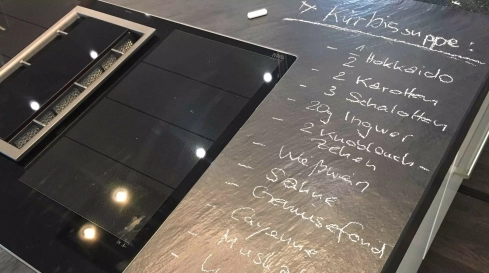 Kürbissuppe:
- 1
2 Hokkaido
- 2 Karotten
- 3 Schalotten
- 20g Ingwer
- 2 Knoblauch-
zehen
- Weißwein
- Sahne
- Gemüsefond
- Cayenne
- Muskat